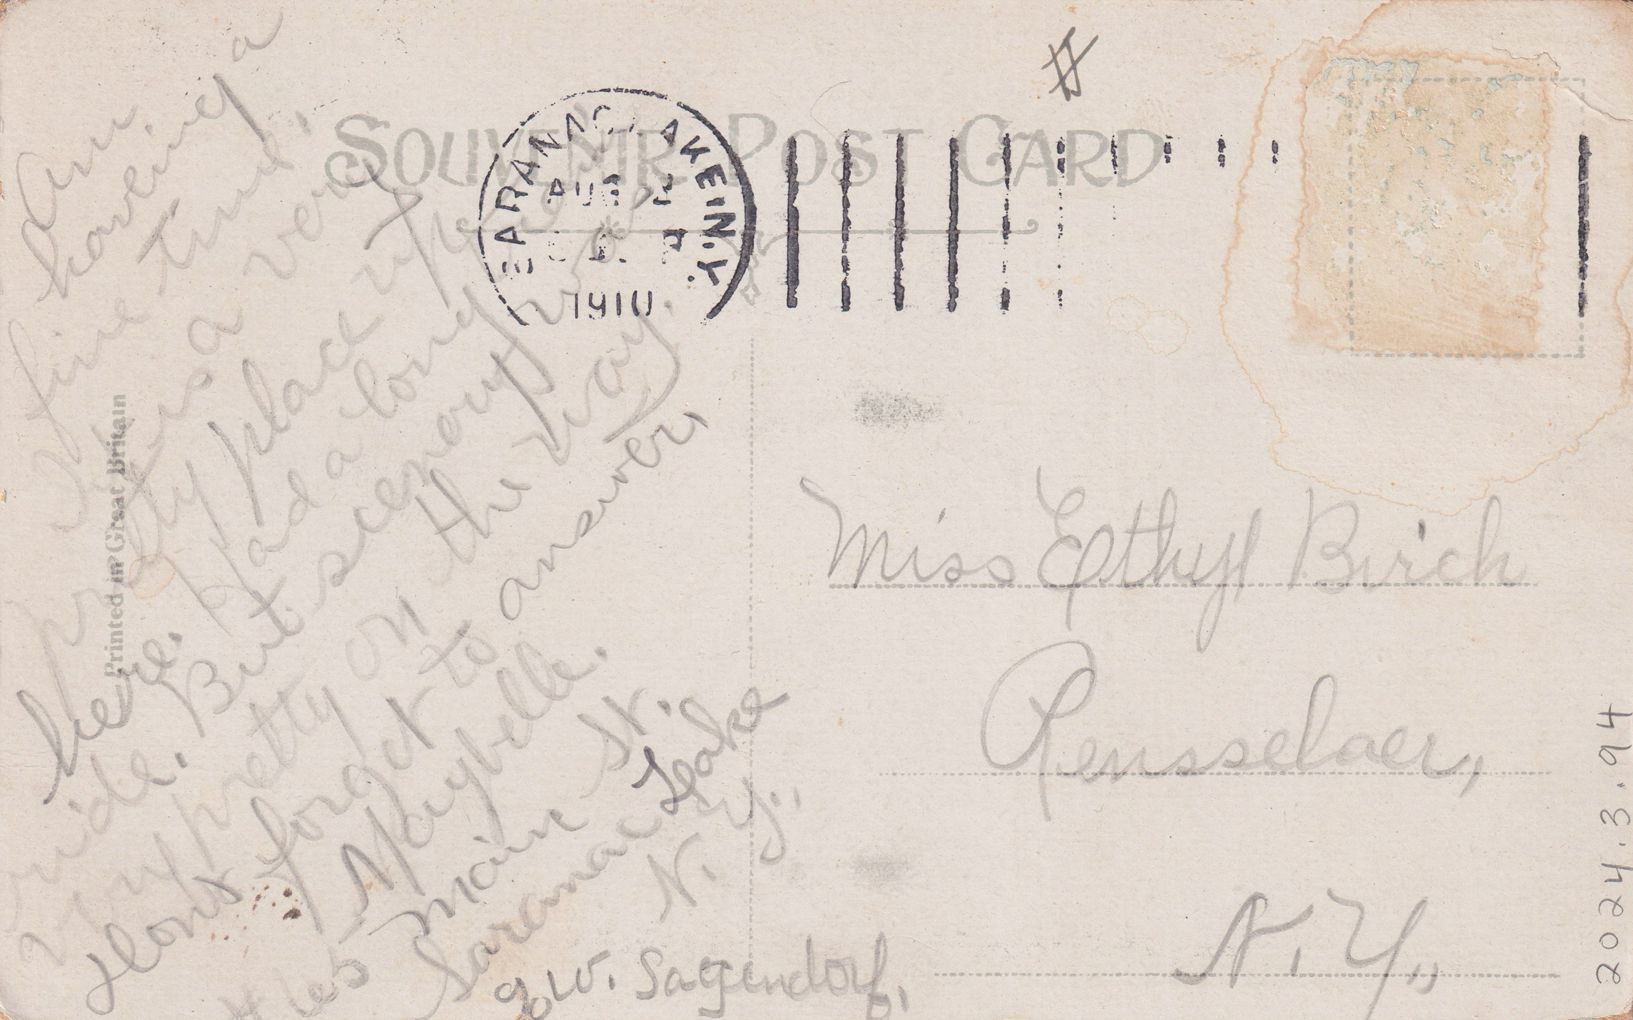 SOUVENIR POST CARD
SARANAC LAKE, N.Y.
AUG
1910
Printed in Great Britain
Am
haveing a
fine time.
It is a very
pretty place up
here. Had a long
ride. But scenery was
very pretty on the way.
Dont forget to answer.
Maybelle.
Main St.
Saranac Lake
N. Y.
W. Sagendorf.
Miss Ethyl Birch
Rensselaer,
N. Y.
2024.3.94